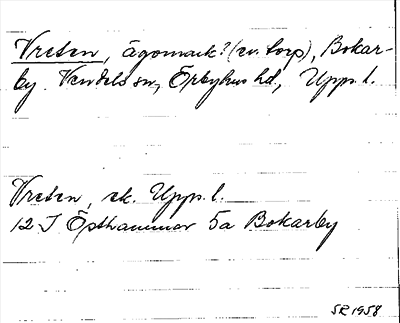 Vreten, ägomark? (ev. torp), Bokar-
by. Vendels sn, Örbyhus hd, Upps. l.
Vreten, ek. Upps. l.
12 I Östhammar 5a Bokarby
SR 1958